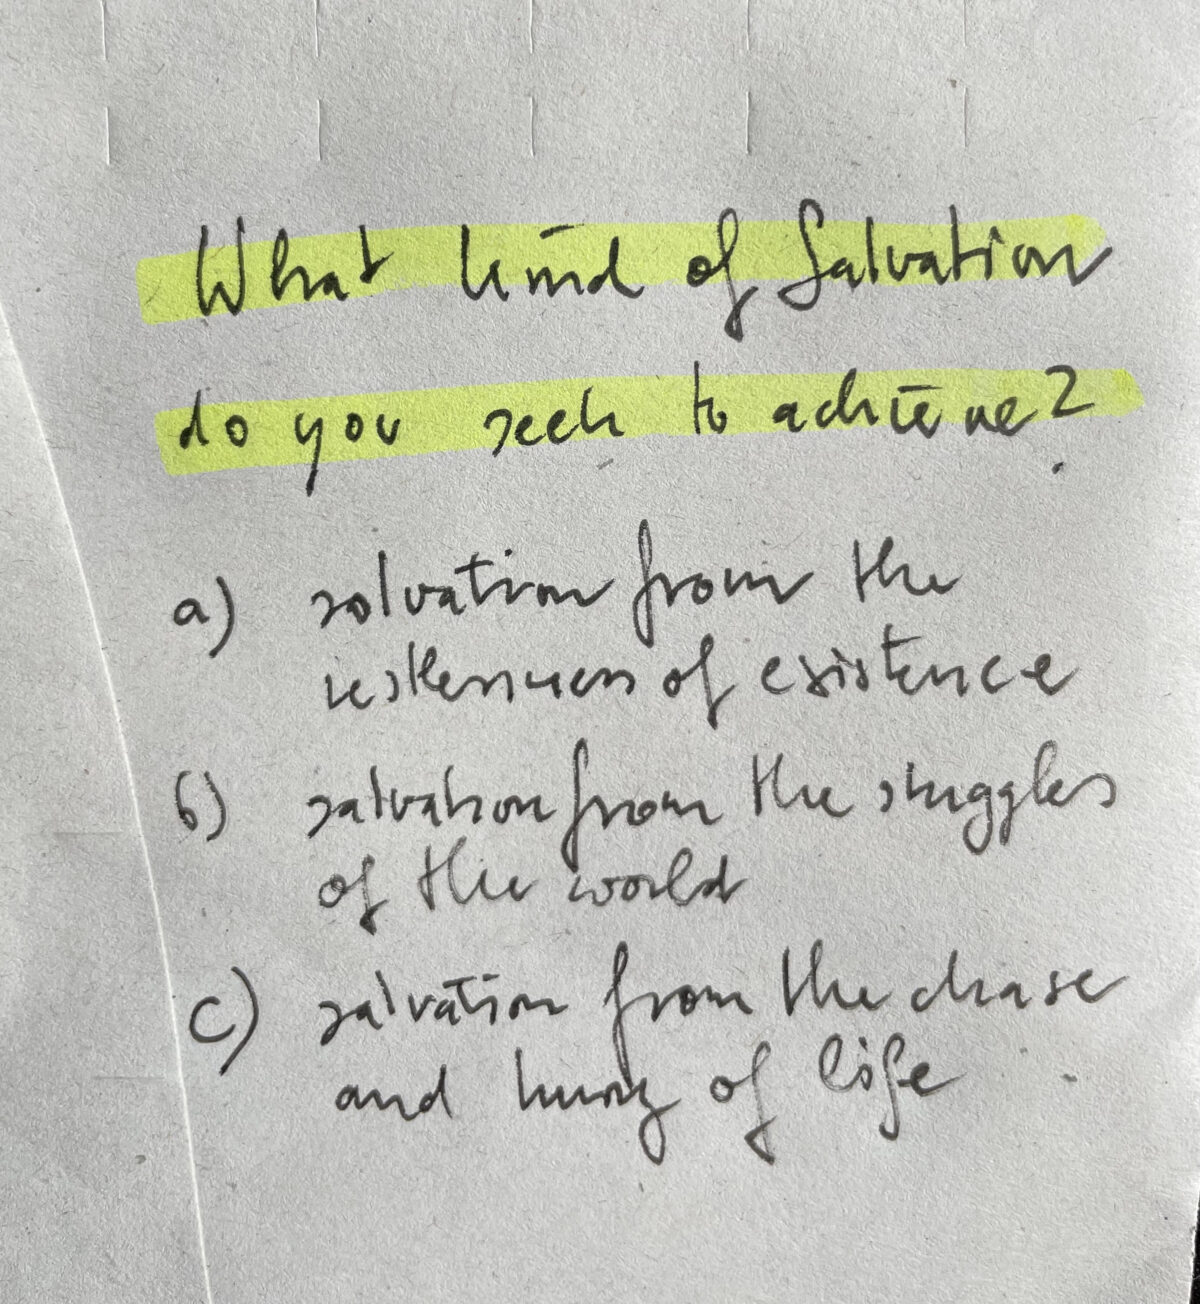 What kind of Salvation
do you seek to achieve?
a) salvation from the
restlessness of existence
b) salvation from the struggles
of the world
c) salvation from the chase
and hurry of life